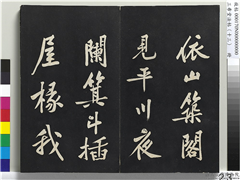 依山築閣
見平川夜
闌箕斗插
屋椽我